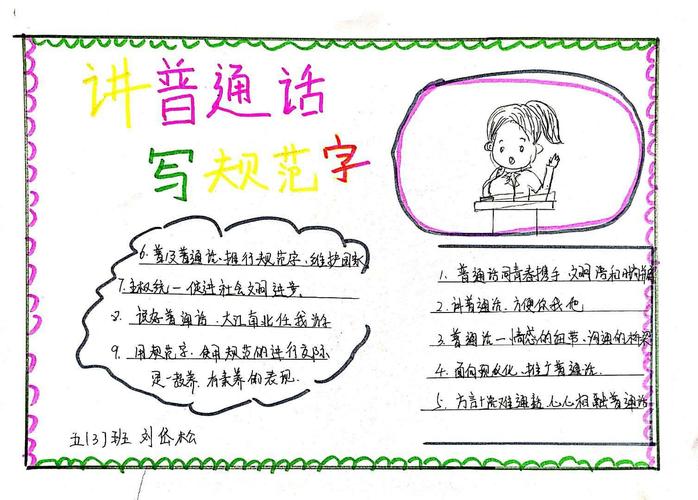 讲普通话
写规范字
6. 普及普通话、推行规范字、维护国家
7. 主权统一 促进社会文明进步.
8. 说好普通话 大江南北任我游
9. 用规范字、使用规范的进行交际
是一教养、有素养的表现.
1. 普通话同青春携手 文明语和
2. 讲普通话, 方便你我他
3. 普通话—情感的纽带、沟通的桥梁
4. 面向现代化、推广普通话.
5. 方言土语难通越 心心相融普通话
五(3)班 刘岱松